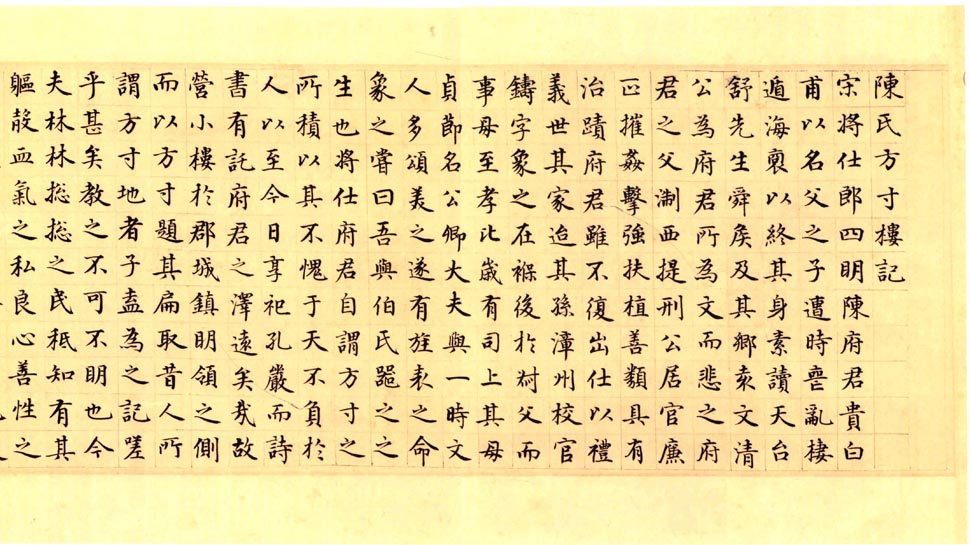 陳氏方寸樓記
宋將仕郎四明陳府君貴白
甫以名父之子遭時喪亂棲
遁海裏以終其身素讀天台
舒先生舜矦及其鄉袁文清
公為府君所為文而悲之府
君之父淛西提刑公居官廉
正摧姦擊強扶植善纇具有
治蹟府君雖不復出仕以禮
義世其家迨其孫漳州校官
鑄字象之在褓後於尌父而
事母至孝比歲有司上其母
貞節名公卿大夫與一時文
人多頌美之遂有旌表之命
象之嘗曰吾與伯氏噐之之
生也將仕府君自謂方寸之
所積以其不愧于天不負於
人以至今日享祀孔嚴而詩
書有託府君之澤遠矣哉故
營小樓於郡城鎮明領之側
而以方寸題其扁取昔人所
謂方寸地者子盍為之記嗟
乎甚矣教之不可不明也今
夫林林揔揔之民秖知有其
軀殻血氣之私良心善性之